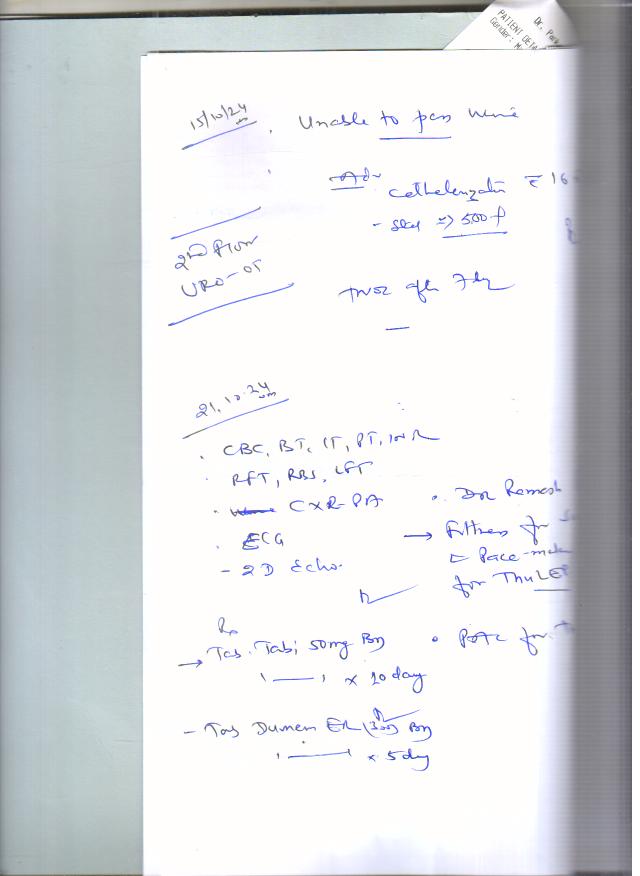 Dr. Pack
PATIENT DETA
Gender: M
15/10/24
Unable to pass urine
Adv
c̄ 16
=> 500
2nd Floor
URO-OT
after 7 day
21.10.24
CBC, BT, CT, PT, INR
RFT, RBS, LFT
CXR-PA
ECG
- 2D Echo.
Ramesh
→ Fitness for
Pace-mak
for ThuLEP
Rx
→ Tab. Tabi 50mg BD
1 — 1 x 10 day
• PAC for
- Tab Dumen ER (300) BD
1 — 1 x 5 day